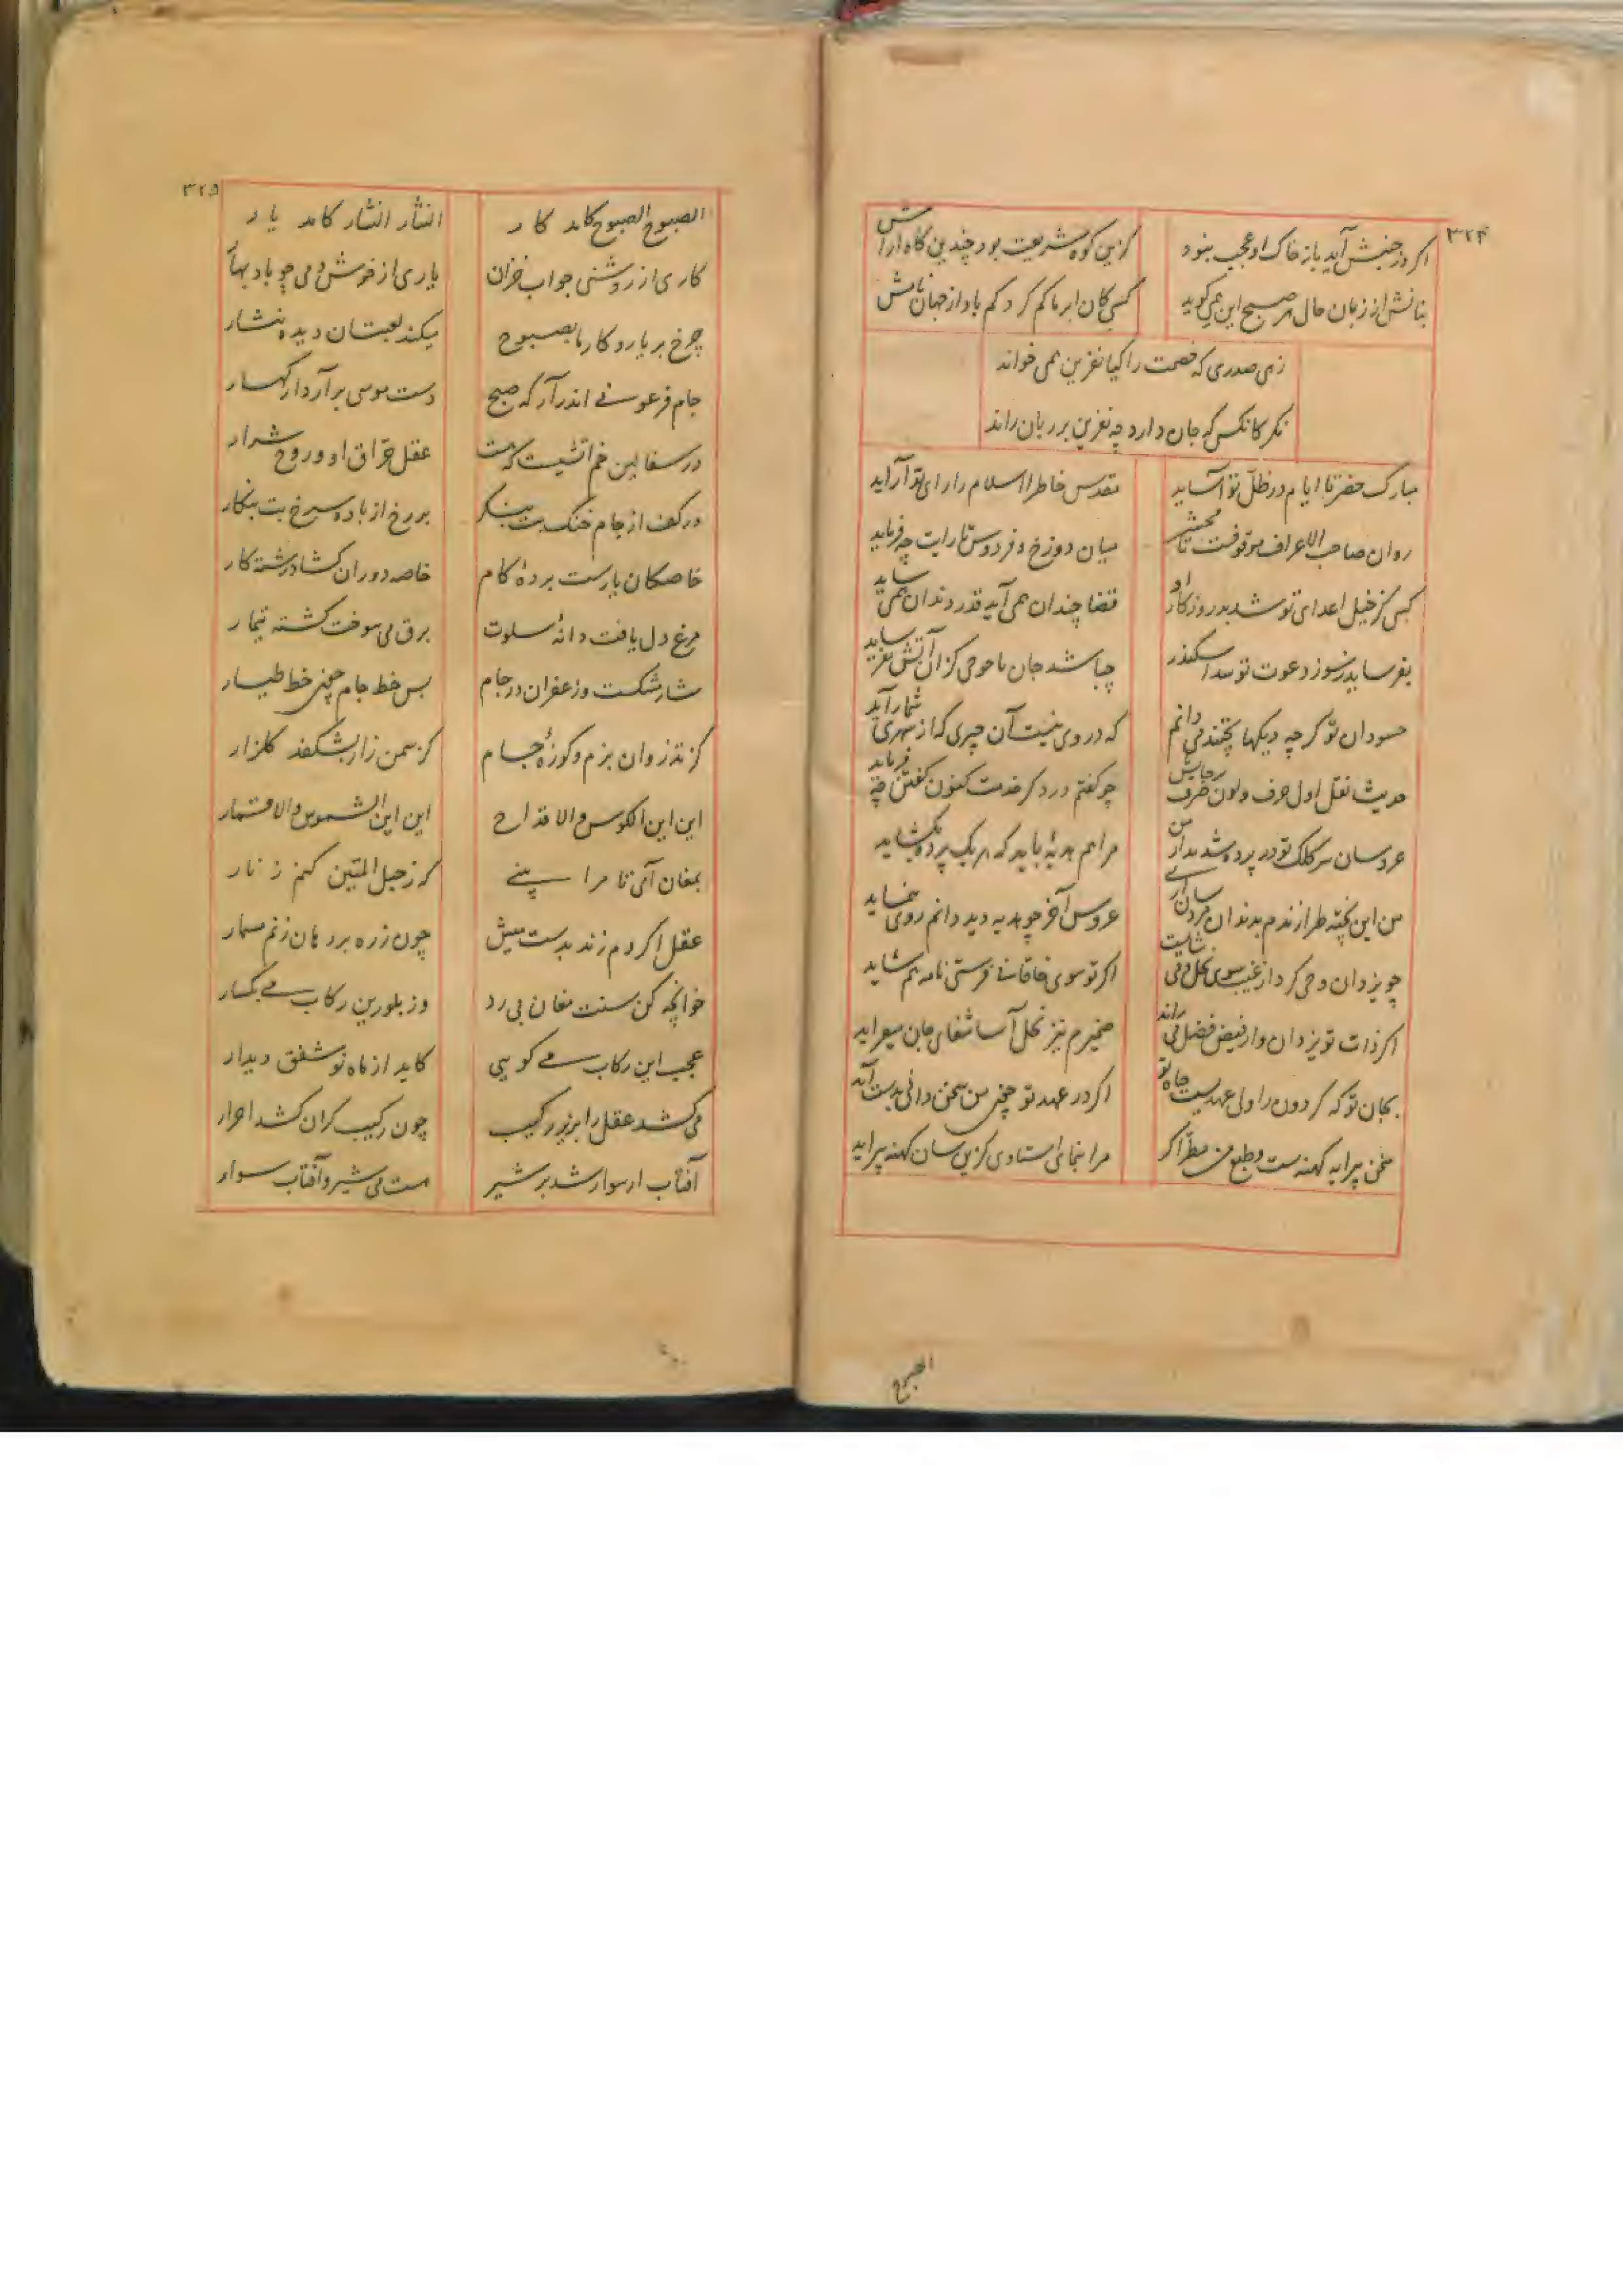 ۳۲۴
اگر در جنبش آید باز خاک او عجب نبود
کزین کوه شریعت بود چندین گاه آرامش
بناتش از زبان حال هر صبح این همی گوید
کسی کان ابر ما کم کرد کم باد از جهان نامش
زهی صدری که خصمت را کیا نفرین همی خواند
نکر کانکس که جان دارد چه نفرین بر زبان راند
مبارک حضرتا ایام در ظل تو آساید
مقدس خاطرا اسلام را رای تو آراید
روان صاحب الاعراف موقوفست تا محشر
میان دوزخ و فردوس تا رایت چه فرماید
کسی کز خیل اعدای تو شد بر روزکار او
قضا چندان همی آید قدر دندان همی ساید
بفرساید ز سوز دعوت تو سد اسکندر
چه باشد جان ماحوجی کزان آتش نفرساید
حسودان تو کر چه دیکها پختند می دانم
که در وی نیست آن چیزی که از بهری شمار آید
حدیث نقل اول حرف و لون حرف رجایش
چو کفتم درد کر خدمت کنون کفتن چه فرماید
عروسان سر کلک تو در پرده شدند از من
مرا هم هدیهٔ باید که هر یک پرده بکشاید
من این پخته طرازنده بدندان مزد آن
عروس آخر چو هدیه دید دانم روی بنماید
چو یزدان وحی کرد از غیب سوی نحل می شایست
اکر تو سوی خاقانی فرستی نامه هم شاید
اکر ذات تو یزدان وار فیض فضل می راند
ضمیرم نیز نحل آسا شفای جان میزاید
بجان تو که کردون را ولی عهدیست جاه تو
اکر در عهد تو چون من سخن دانی بدست آید
سخن پیرایه کهنه ست و طبع من مطرا کر
مرا بنمای استادی کزین سان کهنه پیراید
الصبوح
۳۲۵
الصبوح الصبوح کامد کار
النثار النثار کامد یار
کاری از روشنی چو آب خزان
یاری از خوش دمی چو باد بهار
چرخ بر یار و کار ما بصبوح
میکند لعبتان دیده نثار
جام فرعونی اندر آر که صبح
دست موسی بر آرد از کهسار
در سفالین خم آتشیست که هست
عقل حراق او و روح شرار
در کف از جام خنک بت بنکر
بر رخ از باده سرخ بت بنکار
خاصکان یار ست برده کام
خاصه دوران کشاد رشته کار
مرغ دل یافت دانهٔ سلوت
برق می سوخت کشته تیمار
شار شکست و زعفران در جام
بس خط جام چون خط طیار
کز تذروان بزم و کوزهٔ جام
کز سمن زار بشکفد کلزار
این این الکوس و الاقداح
این این الشموس و الاقمار
بمغان آی تا مرا بینی
که ز حبل المتین کنم زنار
عقل اکر دم زند بدست میش
چون زره بر دهان زنم مسمار
خوانچه کن سنت مغان می رد
وز بلورین رکاب می بکسار
عجب این رکاب می کویی
کاید از ماه نو شفق دیدار
می کشد عقل را بزیر رکیب
چون رکیب کران کشد احرار
آفتاب ار سوار شد بر شیر
هست می شیر و آفتاب سوار